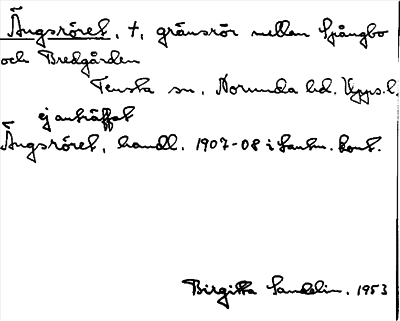 Ängsröret, †, gränsrör mellan Spångbo
och Bredgården
Tensta sn, Norunda hd. Upps. l.
ej anträffat
Ängsröret, handl. 1907-08 i Lantm. kont.
Birgitta Sandelin. 1953